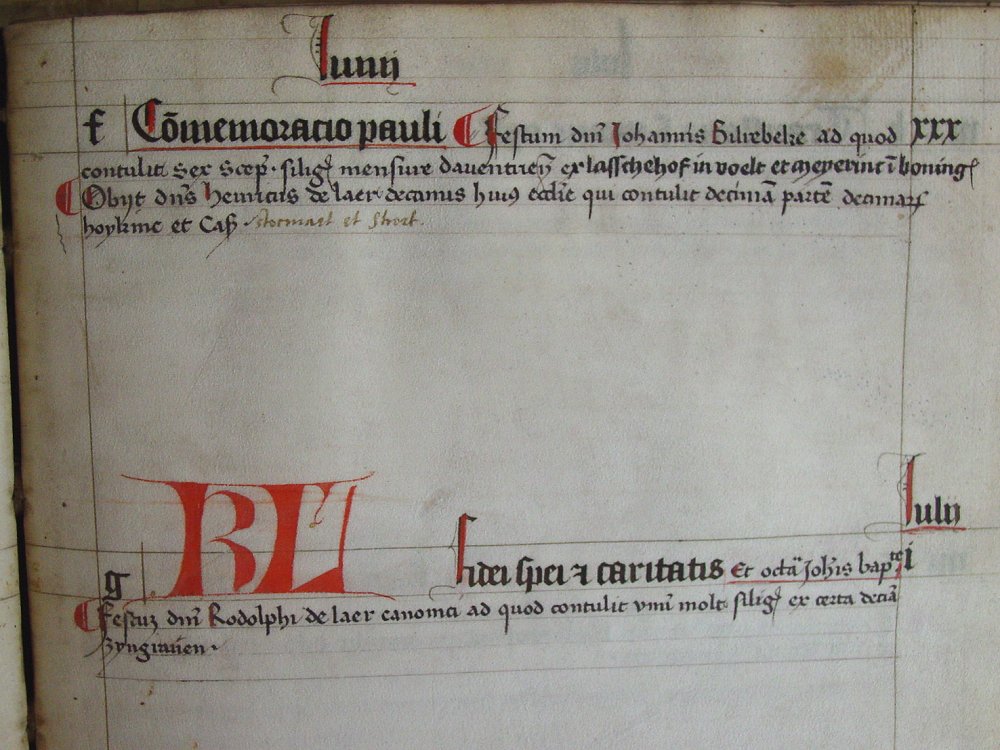 Junij
f Cōmemoracio pauli Festum dnī Johannis Bilrebeke ad quod xxx
contulit sex scep̄ . siliḡ mensure daventrieñ ex lasschehof in voelt et meyerinc ī boninḡ
Obijt dn̄s Heinricus de laer . decanus huius ecclīe qui contulit decimā partē decimaꝝ
hoykinc et Cass stormast et Strot.
Julij
g KL fidei spei ⁊ caritatis Et octā Joh̄is bapᵗᵉ i
Festuꝫ dnī Rodolphi . de laer canonici ad quod contulit vnū molt . siliḡ ex certa deciā
zyngraven .